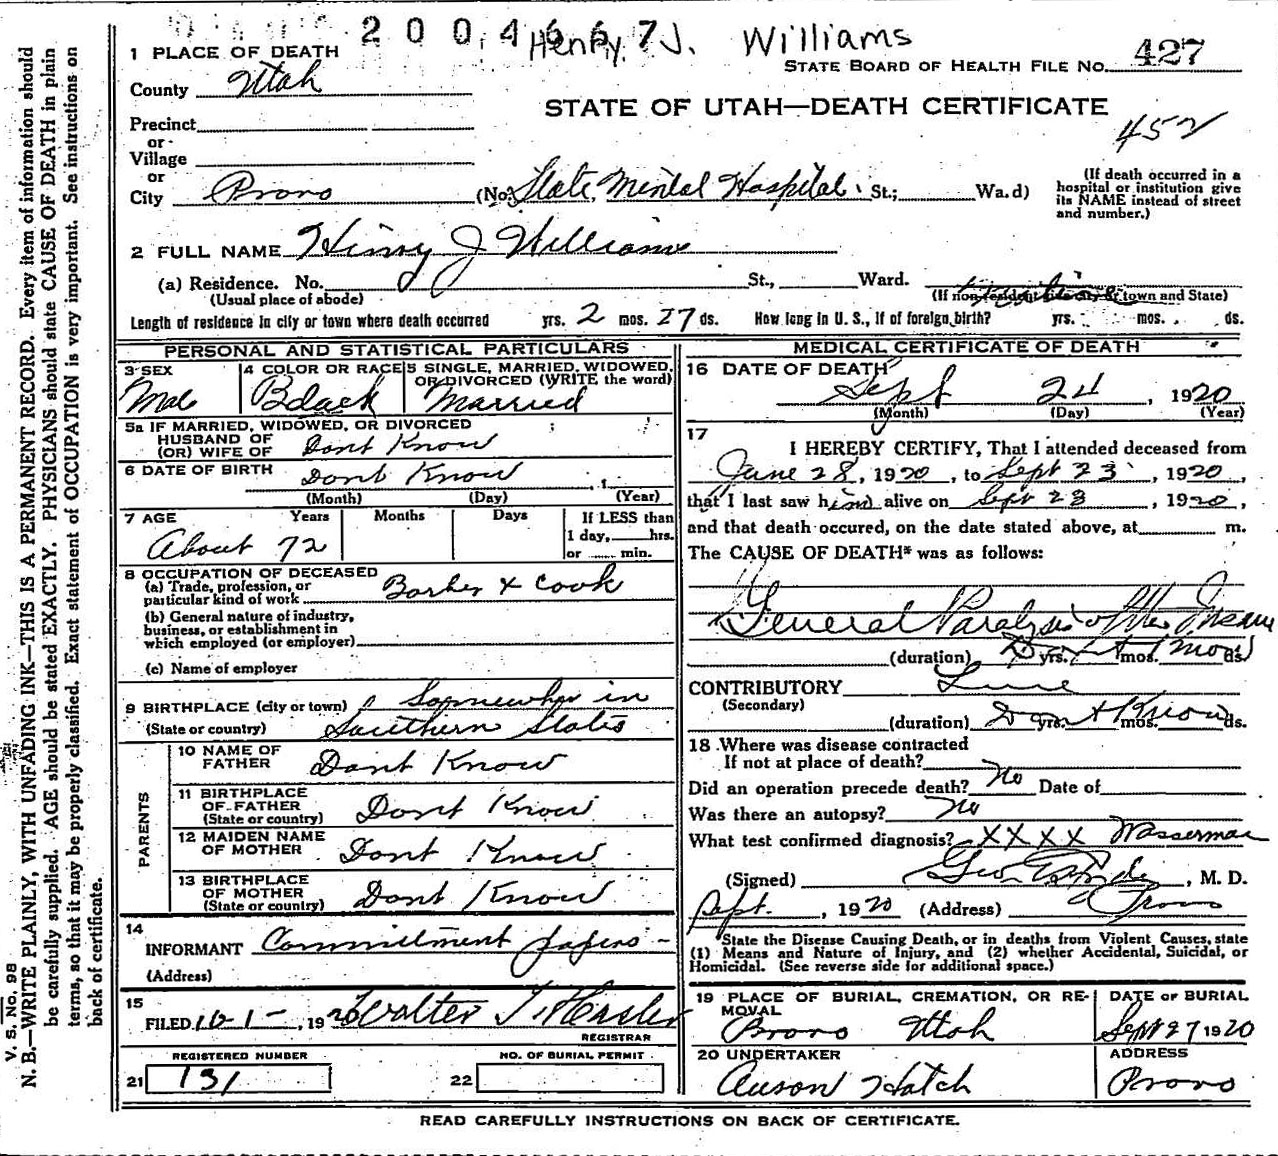 2 0 0 4 6 6 7 Henry J. Williams
1 PLACE OF DEATH
STATE BOARD OF HEALTH FILE NO. 427
County Utah
STATE OF UTAH—DEATH CERTIFICATE
452
Precinct
or
Village
or
City Provo (No. State Mental Hospital St.; Ward)
(If death occurred in a
hospital or institution give
its NAME instead of street
and number.)
2 FULL NAME Henry J Williams
(a) Residence. No. St., Ward.
(Usual place of abode) (If non-resident give city or town and State)
Length of residence in city or town where death occurred yrs. 2 mos. 27 ds. How long in U. S., if of foreign birth? yrs. mos. ds.
PERSONAL AND STATISTICAL PARTICULARS
3 SEX
Male
4 COLOR OR RACE
Black
5 SINGLE, MARRIED, WIDOWED,
OR DIVORCED (WRITE the word)
Married
5a IF MARRIED, WIDOWED, OR DIVORCED
HUSBAND OF
(OR) WIFE OF Dont Know
6 DATE OF BIRTH Dont Know
(Month) (Day) (Year)
7 AGE Years Months Days If LESS than
1 day, hrs.
or min.
About 72
8 OCCUPATION OF DECEASED
(a) Trade, profession, or
particular kind of work Barber & Cook
(b) General nature of industry,
business, or establishment in
which employed (or employer)
(c) Name of employer
9 BIRTHPLACE (city or town) Somewher in
(State or country) Southern States
PARENTS
10 NAME OF
FATHER Dont Know
11 BIRTHPLACE
OF FATHER
(State or country) Dont Know
12 MAIDEN NAME
OF MOTHER Dont Know
13 BIRTHPLACE
OF MOTHER
(State or country) Dont Know
14
INFORMANT Commitment papers -
(Address)
15
FILED 10-1-, 1920 Walter T. Hasler
REGISTRAR
REGISTERED NUMBER
21 131
NO. OF BURIAL PERMIT
22
MEDICAL CERTIFICATE OF DEATH
16 DATE OF DEATH
Sept 24, 1920
(Month) (Day) (Year)
17
I HEREBY CERTIFY, That I attended deceased from
June 28, 1920, to Sept 23, 1920,
that I last saw him alive on Sept 23, 1920,
and that death occured, on the date stated above, at m.
The CAUSE OF DEATH* was as follows:
General Paralysis of the Insane
(duration) Dont Know yrs. mos. ds.
CONTRIBUTORY Lues
(Secondary)
(duration) Dont Know yrs. mos. ds.
18 Where was disease contracted
If not at place of death?
Did an operation precede death? No Date of
Was there an autopsy? No
What test confirmed diagnosis? XXXX Wasserman
(Signed) Geo E , M. D.
Sept. , 1920 (Address) Provo
*State the Disease Causing Death, or in deaths from Violent Causes, state
(1) Means and Nature of Injury, and (2) whether Accidental, Suicidal, or
Homicidal. (See reverse side for additional space.)
19 PLACE OF BURIAL, CREMATION, OR RE-
MOVAL
Provo Utah
DATE OF BURIAL
Sept 27 1920
20 UNDERTAKER
Anson Hatch
ADDRESS
Provo
READ CAREFULLY INSTRUCTIONS ON BACK OF CERTIFICATE.
V. S. No. 98
N. B.—WRITE PLAINLY, WITH UNFADING INK—THIS IS A PERMANENT RECORD. Every item of information should
be carefully supplied. AGE should be stated EXACTLY. PHYSICIANS should state CAUSE OF DEATH in plain
terms, so that it may be properly classified. Exact statement of OCCUPATION is very important. See instructions on
back of certificate.